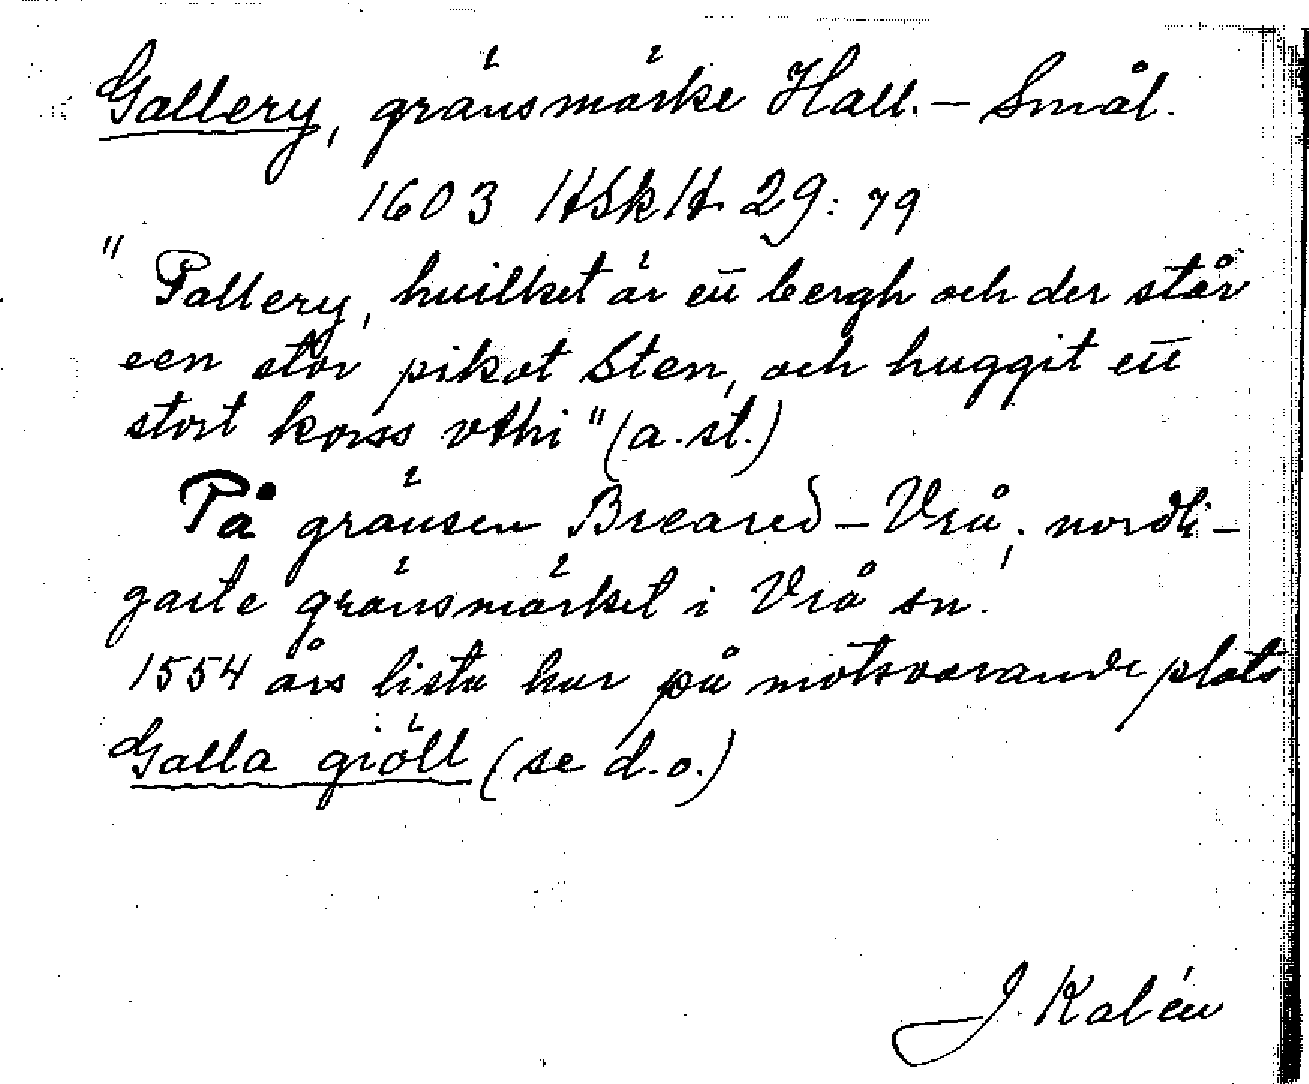 Gallery, gränsmärke Hall. – Smål.
1603 HSkH 29: 79
" Pallery, huilket är ett bergh och der står
een stor pikot Sten, och huggit ett
stort korss vthi" (a. st.)
På gränsen Breared – Vrå; nordli-
gaste gränsmärket i Vrå sn.
1554 års lista har på motsvarande plats
Galla giöll (se d.o.)
J. Kalén